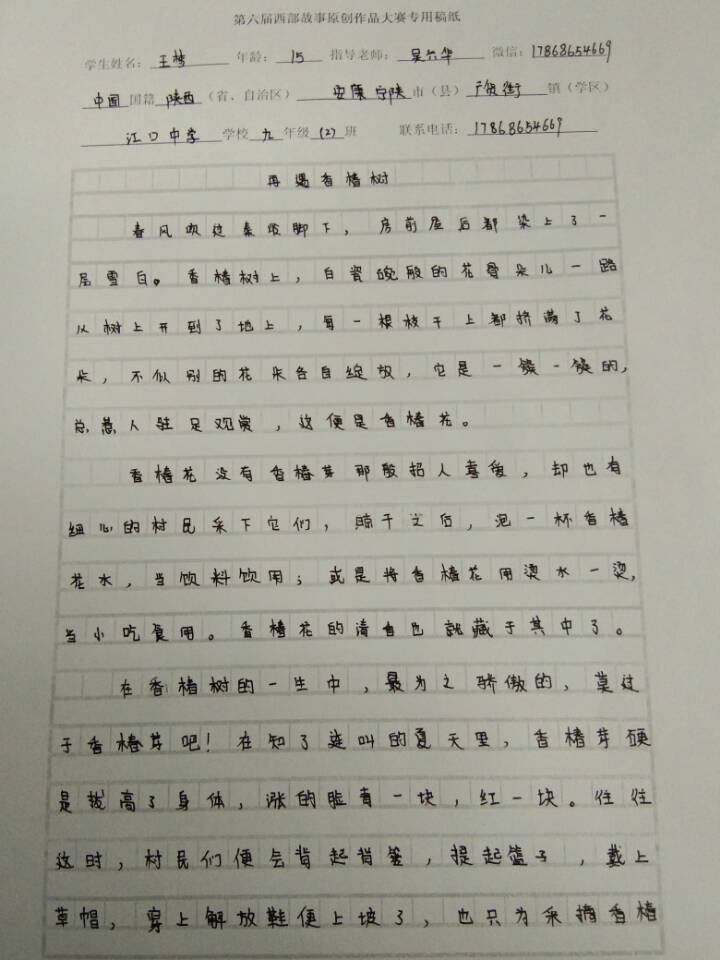 第六届西部故事原创作品大赛专用稿纸
学生姓名：王梦 年龄：15 指导老师：吴六华 微信：17868654669
中国国籍陕西（省、自治区）安康宁陕市（县）广货街镇（学区）
江口中学学校九年级(2)班 联系电话：17868654669
再遇香椿树
春风吹过秦岭脚下，房前屋后都染上了一
层雪白。香椿树上，白瓷碗般的花骨朵儿一路
从树上开到了地上，每一根枝干上都挤满了花
朵，不似别的花朵各自绽放，它是一簇一簇的，
总惹人驻足观赏，这便是香椿花。
香椿花没有香椿芽那般招人喜爱，却也有
细心的村民采下它们，晾干之后，泡一杯香椿
花水，当饮料饮用；或是将香椿花用烫水一烫，
当小吃食用。香椿花的清白也就藏于其中了。
在香椿树的一生中，最为之骄傲的，莫过
于香椿芽吧！在知了连叫的夏天里，香椿芽硬
是拔高了身体，涨的脸青一块，红一块。往往
这时，村民们便会背起背篓，提起篮子，戴上
草帽，穿上解放鞋便上坡了，也只为采摘香椿